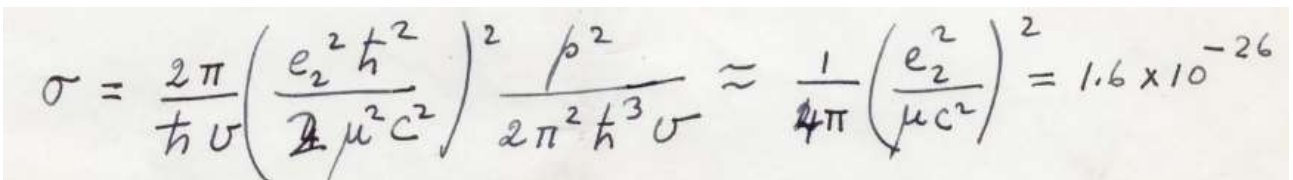 σ = \frac{2π}{ħ v} \left( \frac{e_2^2 ħ^2}{2 μ^2 c^2} \right)^2 \frac{p^2}{2π^2 ħ^3 v} ≈ \frac{1}{4π} \left( \frac{e_2^2}{μc^2} \right)^2 = 1.6 × 10^{-26}